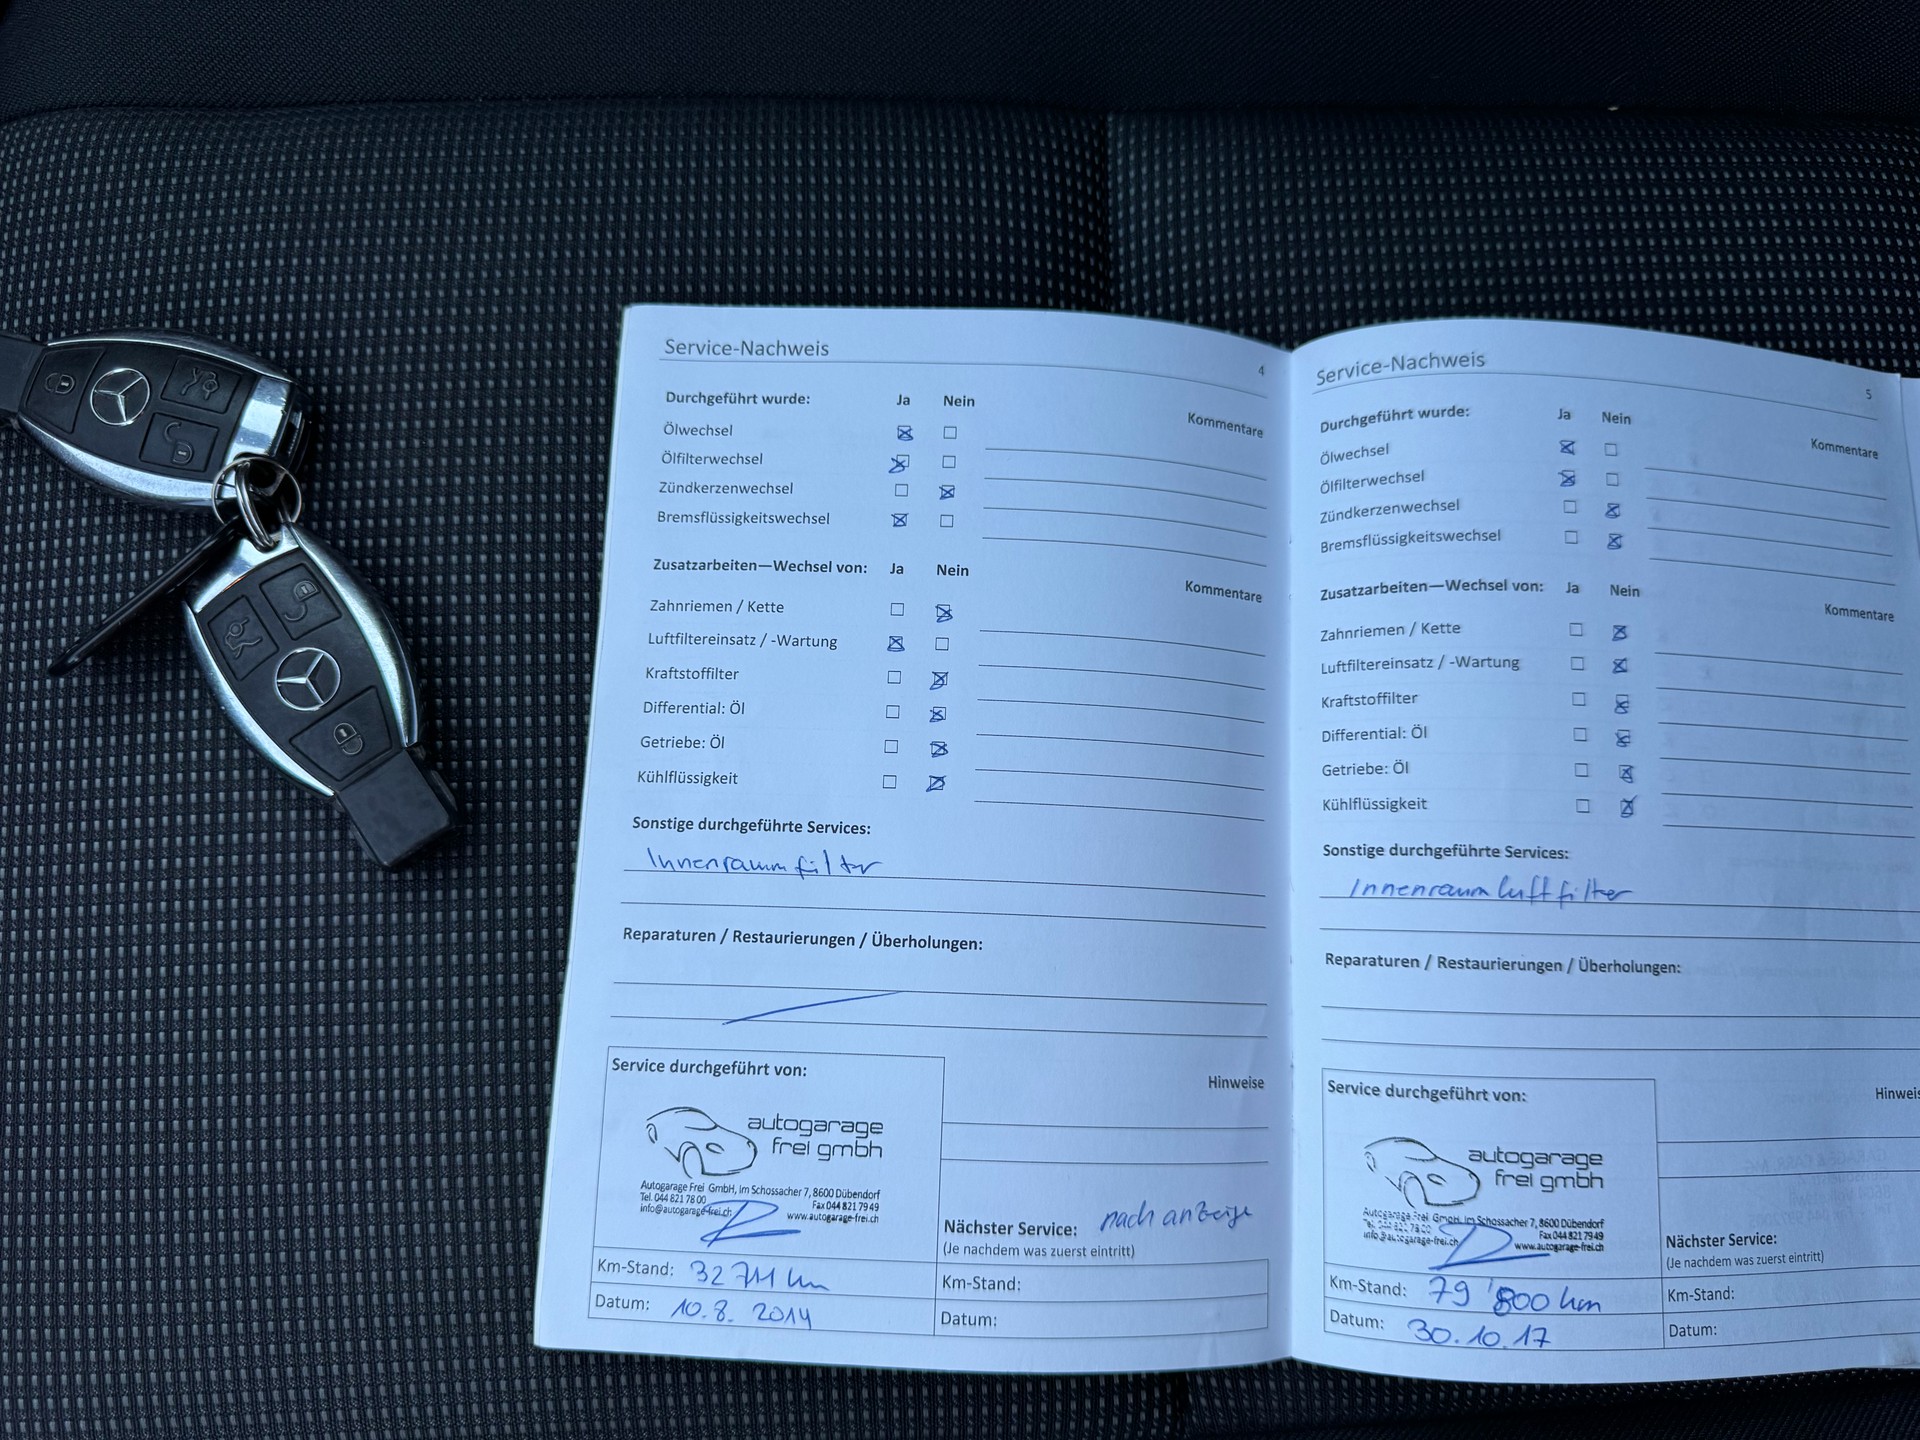 Service-Nachweis
4
Durchgeführt wurde: Ja Nein
Kommentare
Ölwechsel
Ölfilterwechsel
Zündkerzenwechsel
Bremsflüssigkeitswechsel
Zusatzarbeiten—Wechsel von: Ja Nein
Kommentare
Zahnriemen / Kette
Luftfiltereinsatz / -Wartung
Kraftstoffilter
Differential: Öl
Getriebe: Öl
Kühlflüssigkeit
Sonstige durchgeführte Services:
Innenraumfilter
Reparaturen / Restaurierungen / Überholungen:
Service durchgeführt von:
Hinweise
autogarage
frei gmbh
Autogarage Frei GmbH, Im Schossacher 7, 8600 Dübendorf
Tel. 044 821 78 00 Fax 044 821 79 49
info@autogarage-frei.ch www.autogarage-frei.ch
Nächster Service: nach anzeige
(Je nachdem was zuerst eintritt)
Km-Stand: 32 711 km
Km-Stand:
Datum: 10.8. 2014
Datum:
Service-Nachweis
5
Durchgeführt wurde: Ja Nein
Kommentare
Ölwechsel
Ölfilterwechsel
Zündkerzenwechsel
Bremsflüssigkeitswechsel
Zusatzarbeiten—Wechsel von: Ja Nein
Kommentare
Zahnriemen / Kette
Luftfiltereinsatz / -Wartung
Kraftstoffilter
Differential: Öl
Getriebe: Öl
Kühlflüssigkeit
Sonstige durchgeführte Services:
Innenraumluftfilter
Reparaturen / Restaurierungen / Überholungen:
Service durchgeführt von:
Hinweis
autogarage
frei gmbh
Autogarage Frei GmbH, Im Schossacher 7, 8600 Dübendorf
Tel. 044 821 78 00 Fax 044 821 79 49
info@autogarage-frei.ch www.autogarage-frei.ch
Nächster Service:
(Je nachdem was zuerst eintritt)
Km-Stand: 79'800 km
Km-Stand:
Datum: 30.10.17
Datum: